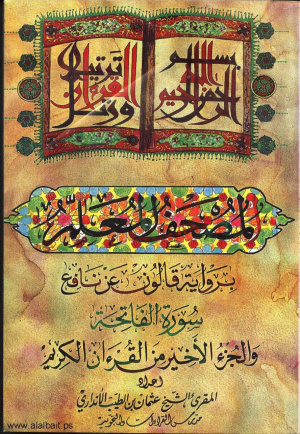 بسم
الله
الرحمن الرحيم
ورتل
القرءان
ترتيلا
المصحف المعلم
برواية قالون عن نافع
سورة الفاتحة
والجزء الأخير من القرءان الكريم
إعداد
المقرئ الشيخ عثمان بن الطيب الأنداري
مدرس القراءات والتجويد
www.alalbait.ps